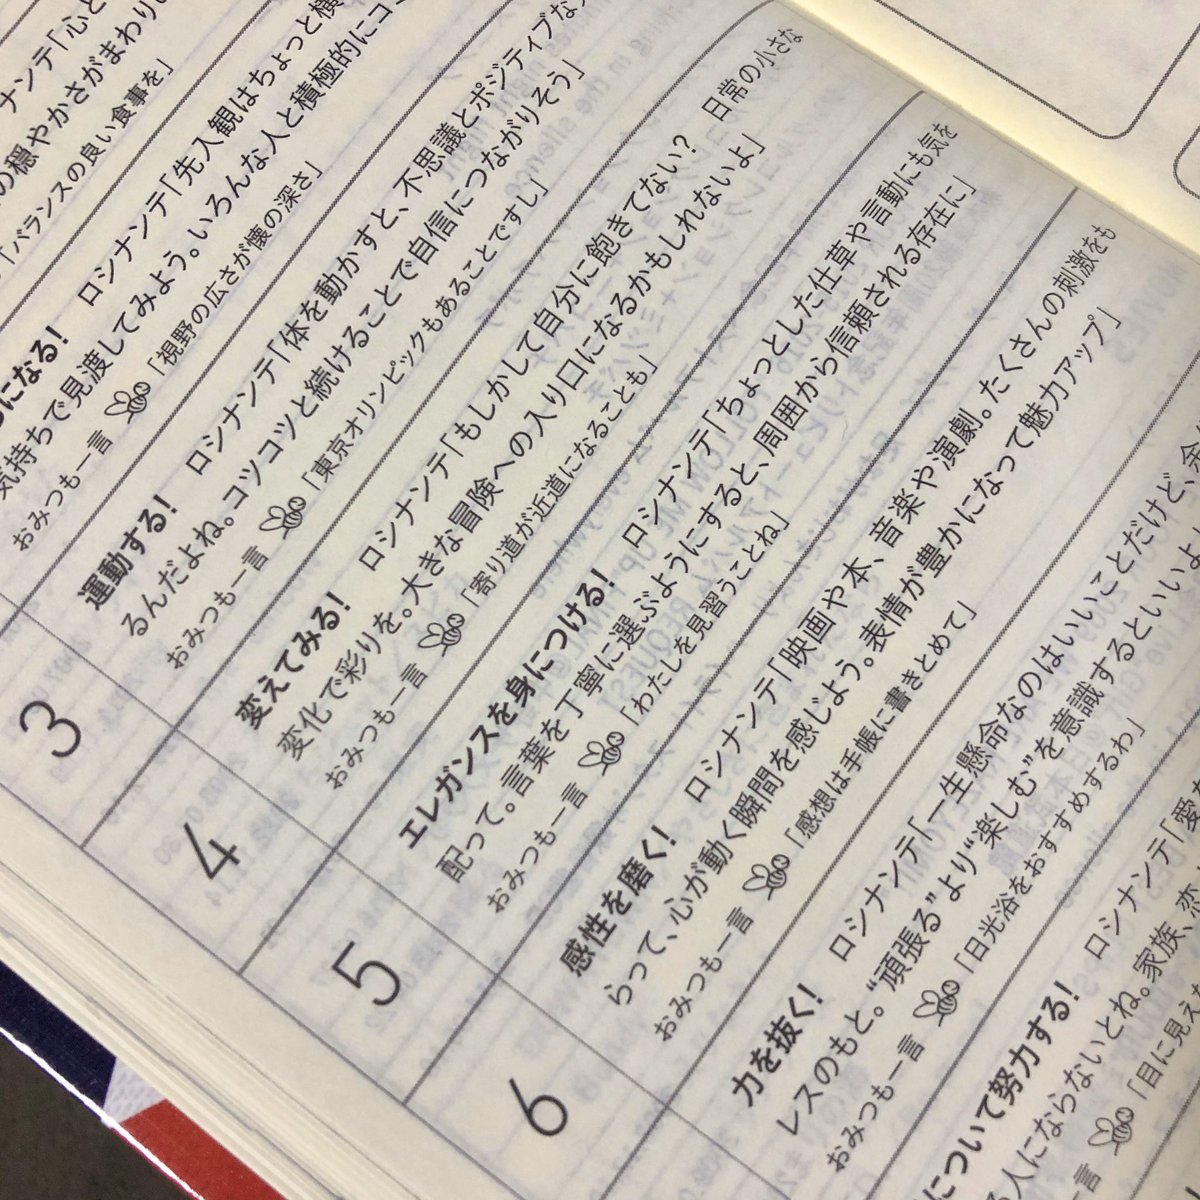 ナンテ「心と
の穏やかさがまわり
「バランスの良い食事を」
になる! ロシナンテ「先入観はちょっと横
気持ちで見渡してみよう。いろんな人と積極的にコ
おみつも一言 「視野の広さが懐の深さ」
3 運動する! ロシナンテ「体を動かすと、不思議とポジティブな
るんだよね。コツコツと続けることで自信につながりそう」
おみつも一言 「東京オリンピックもあることですし」
4 変えてみる! ロシナンテ「もしかして自分に飽きてない? 日常の小さな
変化で彩りを。大きな冒険への入り口になるかもしれないよ」
おみつも一言 「寄り道が近道になることも」
5 エレガンスを身につける! ロシナンテ「ちょっとした仕草や言動にも気を
配って。言葉を丁寧に選ぶようにすると、周囲から信頼される存在に」
おみつも一言 「わたしを見習うことね」
6 感性を磨く! ロシナンテ「映画や本、音楽や演劇。たくさんの刺激をも
らって、心が動く瞬間を感じよう。表情が豊かになって魅力アップ」
おみつも一言 「感想は手帳に書きとめて」
力を抜く! ロシナンテ「一生懸命なのはいいことだけど、
レスのもと。“頑張る”より“楽しむ”を意識するといいよ
おみつも一言 「日光浴をおすすめするわ」
について努力する! ロシナンテ「愛
る人にならないとね。家族、恋
一言 「目に見え